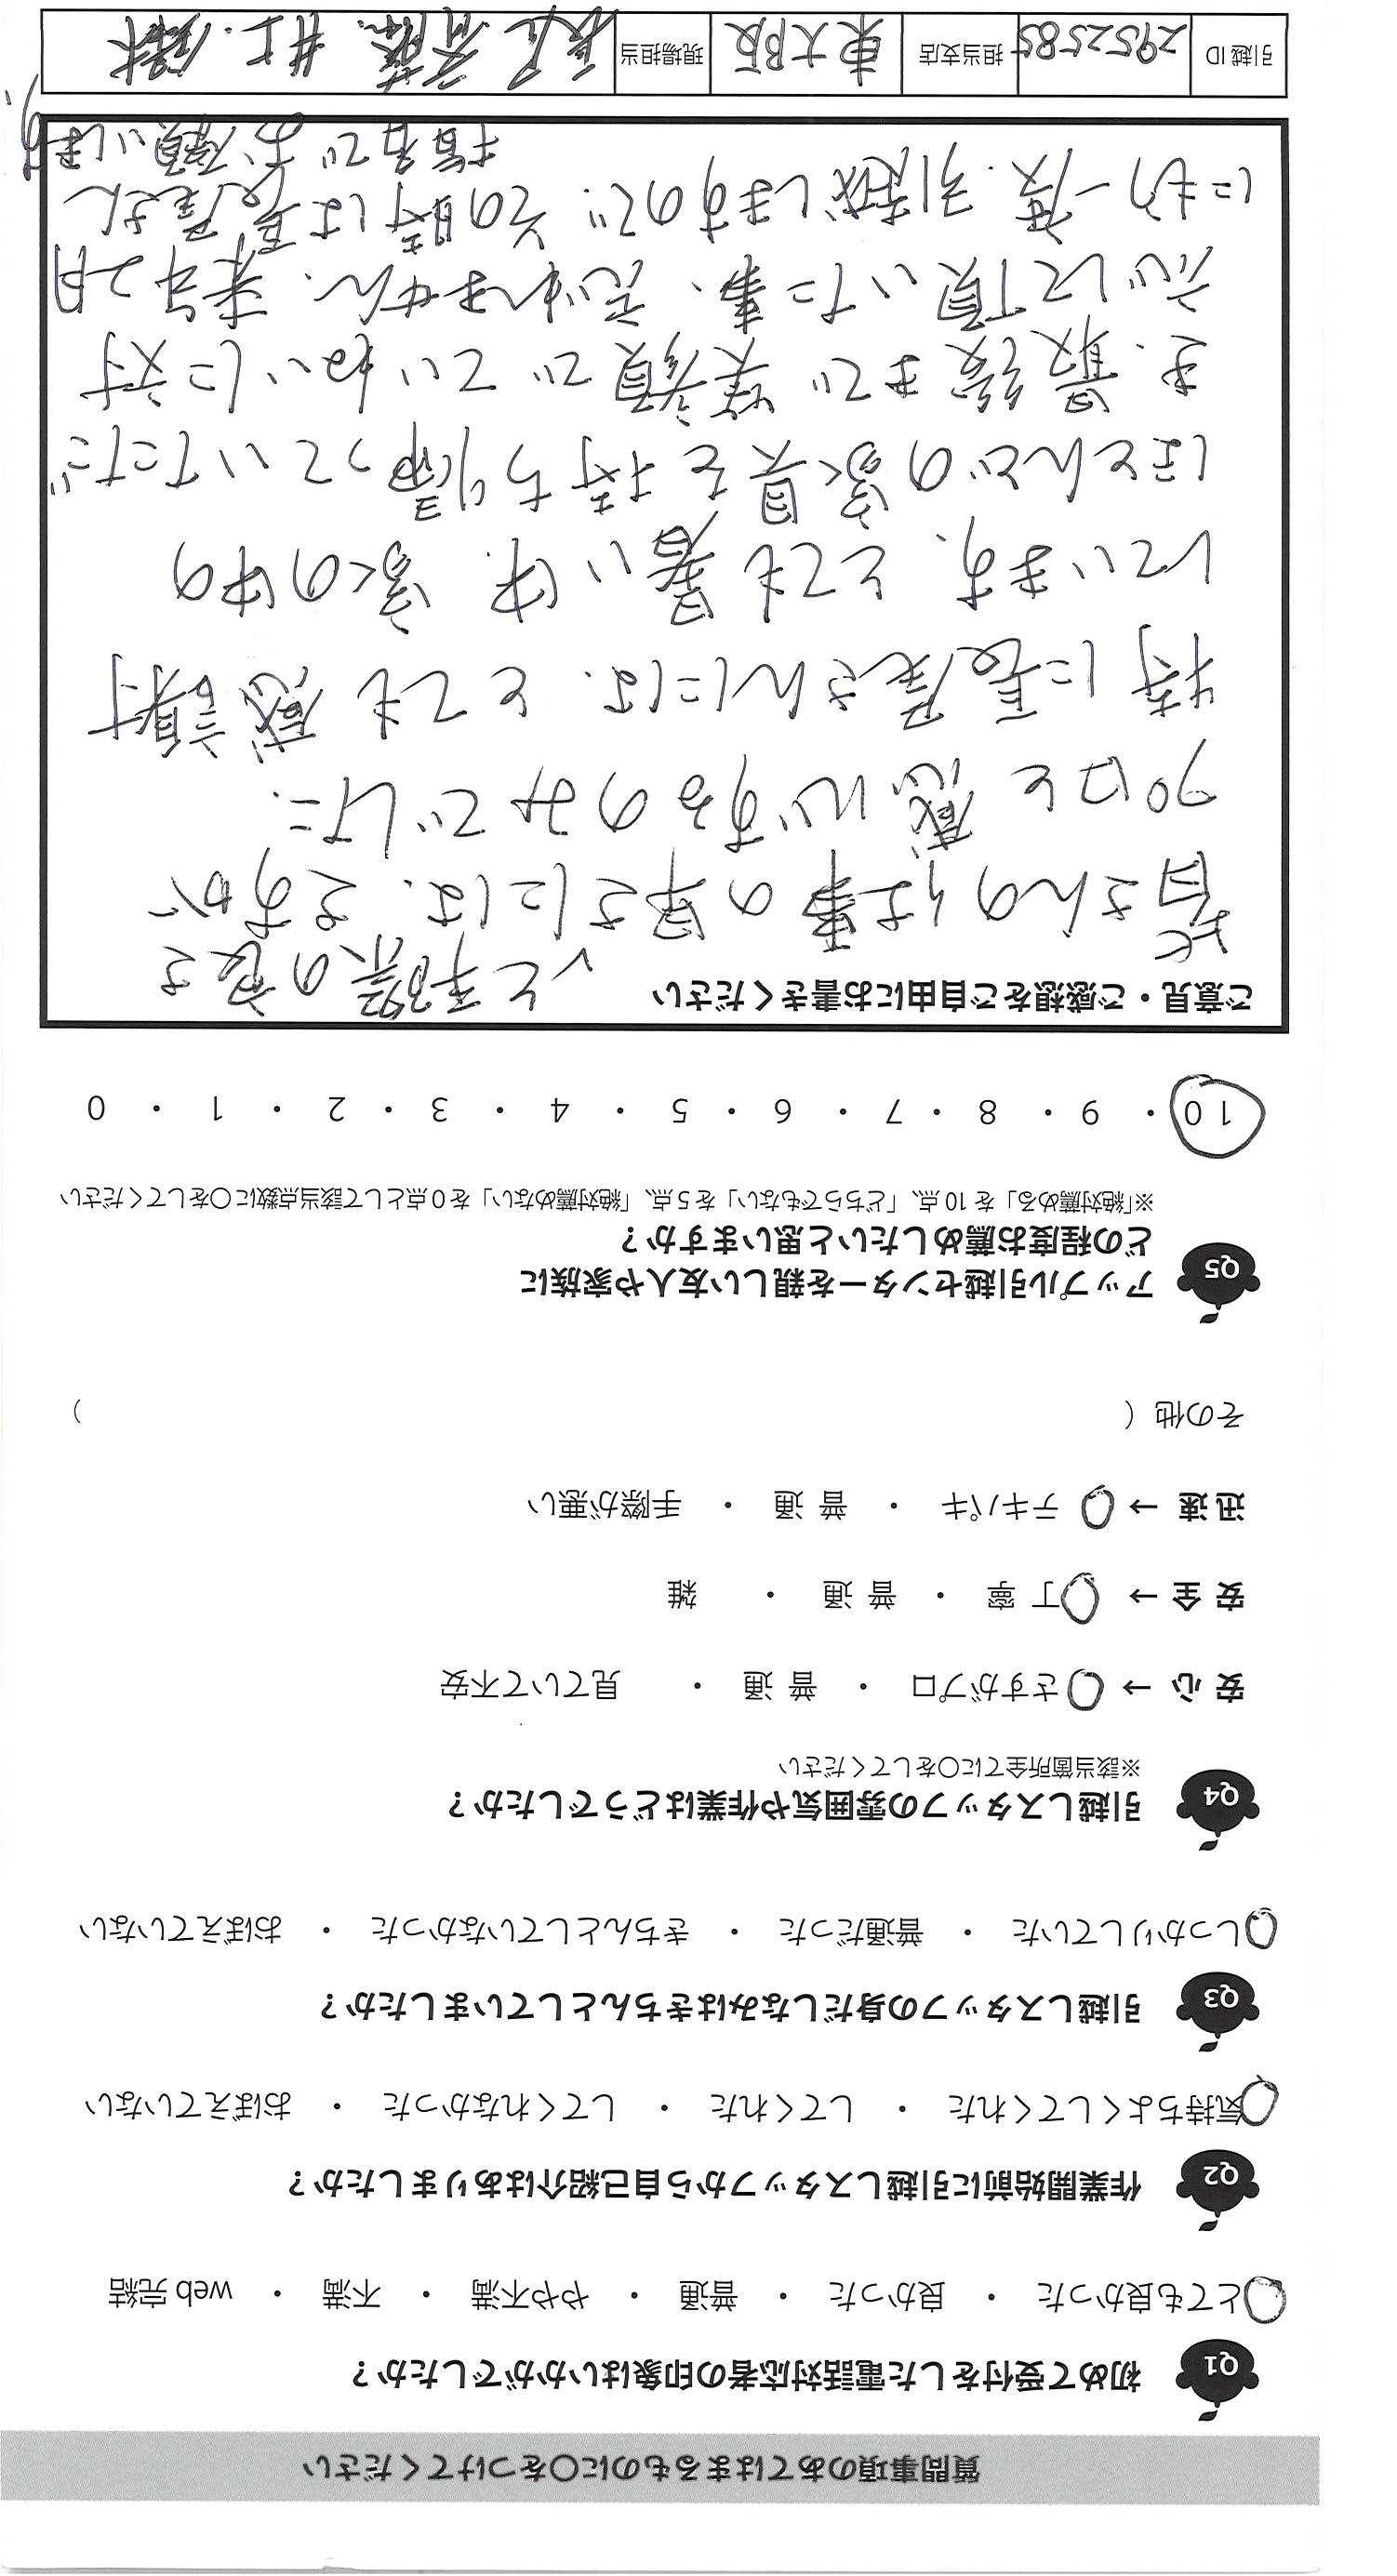 質問事項のあてはまるものに〇をつけてください
Q1 初めて受付をした電話対応者の印象はいかがでしたか？
とても良かった ・ 良かった ・ 普通 ・ やや不満 ・ 不満 ・ web 完結
Q2 作業開始前に引越しスタッフから自己紹介はありましたか？
気持ちよくしてくれた ・ してくれた ・ してくれなかった ・ おぼえていない
Q3 引越しスタッフの身だしなみはきちんとしていましたか？
しっかりしていた ・ 普通だった ・ きちんとしていなかった ・ おぼえていない
Q4 引越しスタッフの雰囲気や作業はどうでしたか？
※該当箇所全てに〇をしてください
安心 → さすがプロ ・ 普通 ・ 見ていて不安
安全 → 丁寧 ・ 普通 ・ 雑
迅速 → テキパキ ・ 普通 ・ 手際が悪い
その他（ ）
Q5 アップル引越センターを親しい友人や家族に
どの程度お薦めしたいと思いますか？
※「絶対薦める」を 10 点、「どちらでもない」を 5 点、「絶対薦めない」を 0 点として該当点数に〇をしてください
10 ・ 9 ・ 8 ・ 7 ・ 6 ・ 5 ・ 4 ・ 3 ・ 2 ・ 1 ・ 0
ご意見・ご感想をご自由にお書きください
と手際の良さ
皆さんの仕事の早さには、さすが
プロと感心するのみでした。
特に長尾さんには、とても感謝
しています。とても暑い中、家の中の
ほとんどの家具を持ち帰っていただ
き、最後まで笑顔でていねいに対
応して頂いた事、忘れません。来年2月
にもう一度、引越しますので、その時は長尾さん
指名でお願いします。
引越 ID 2952585 担当支店 東大阪 現場担当 長尾 斉藤、井上、